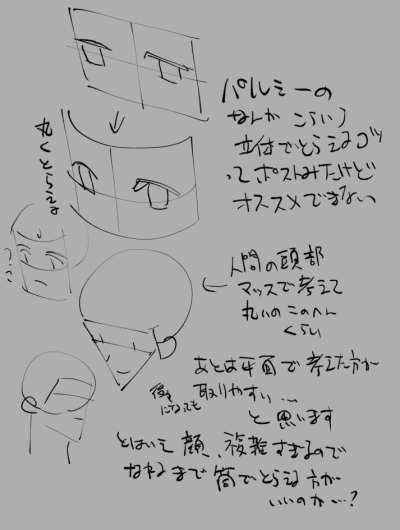 パルミーの
なんか こういう
立体でとらえるゾッ
ってポストみたけど
オススメできない
丸くとらえる
人間の頭部
マッスで考えて
丸いのこのへん
くらい
あとは平面で考えた方が
取りやすい…
後ろになっても
と思います
とはいえ顔、複雑すぎるので
なれるまで筒でとらえる方が
いいのか…?